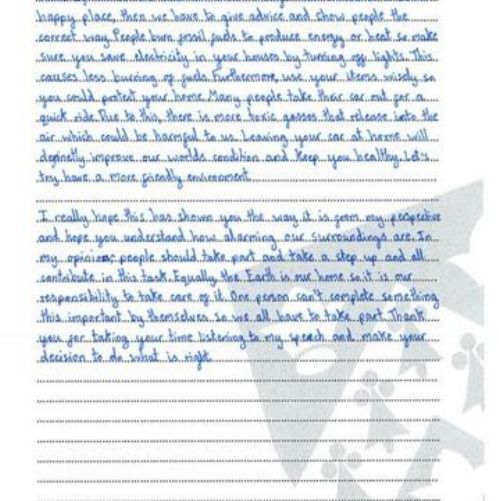 happy place, then we have to give advice and show people the
correct way. People burn fossil fuels to produce energy or heat so make
sure you save electricity in your houses by turning off lights. This
causes less burning of fuels. Furthermore, use your items wisely so
you could protect your home. Many people take their car out for a
quick ride. Due to this, there is more toxic gasses that release into the
air which could be harmful to us. Leaving your car at home will
definetly improve our worlds condition and keep you healthy. Let's
try have a more friendly environment.
I really hope this has shown you the way it is from my perspective
and hope you understand how alarming our surroundings are. In
my opinion, people should take part and take a step up and all
contribute in this task. Equally the Earth is our home so it is our
responsibility to take care of it. One person can't complete something
this important by themselves so we all have to take part. Thank
you for taking your time listening to my speech and make your
decision to do what is right.